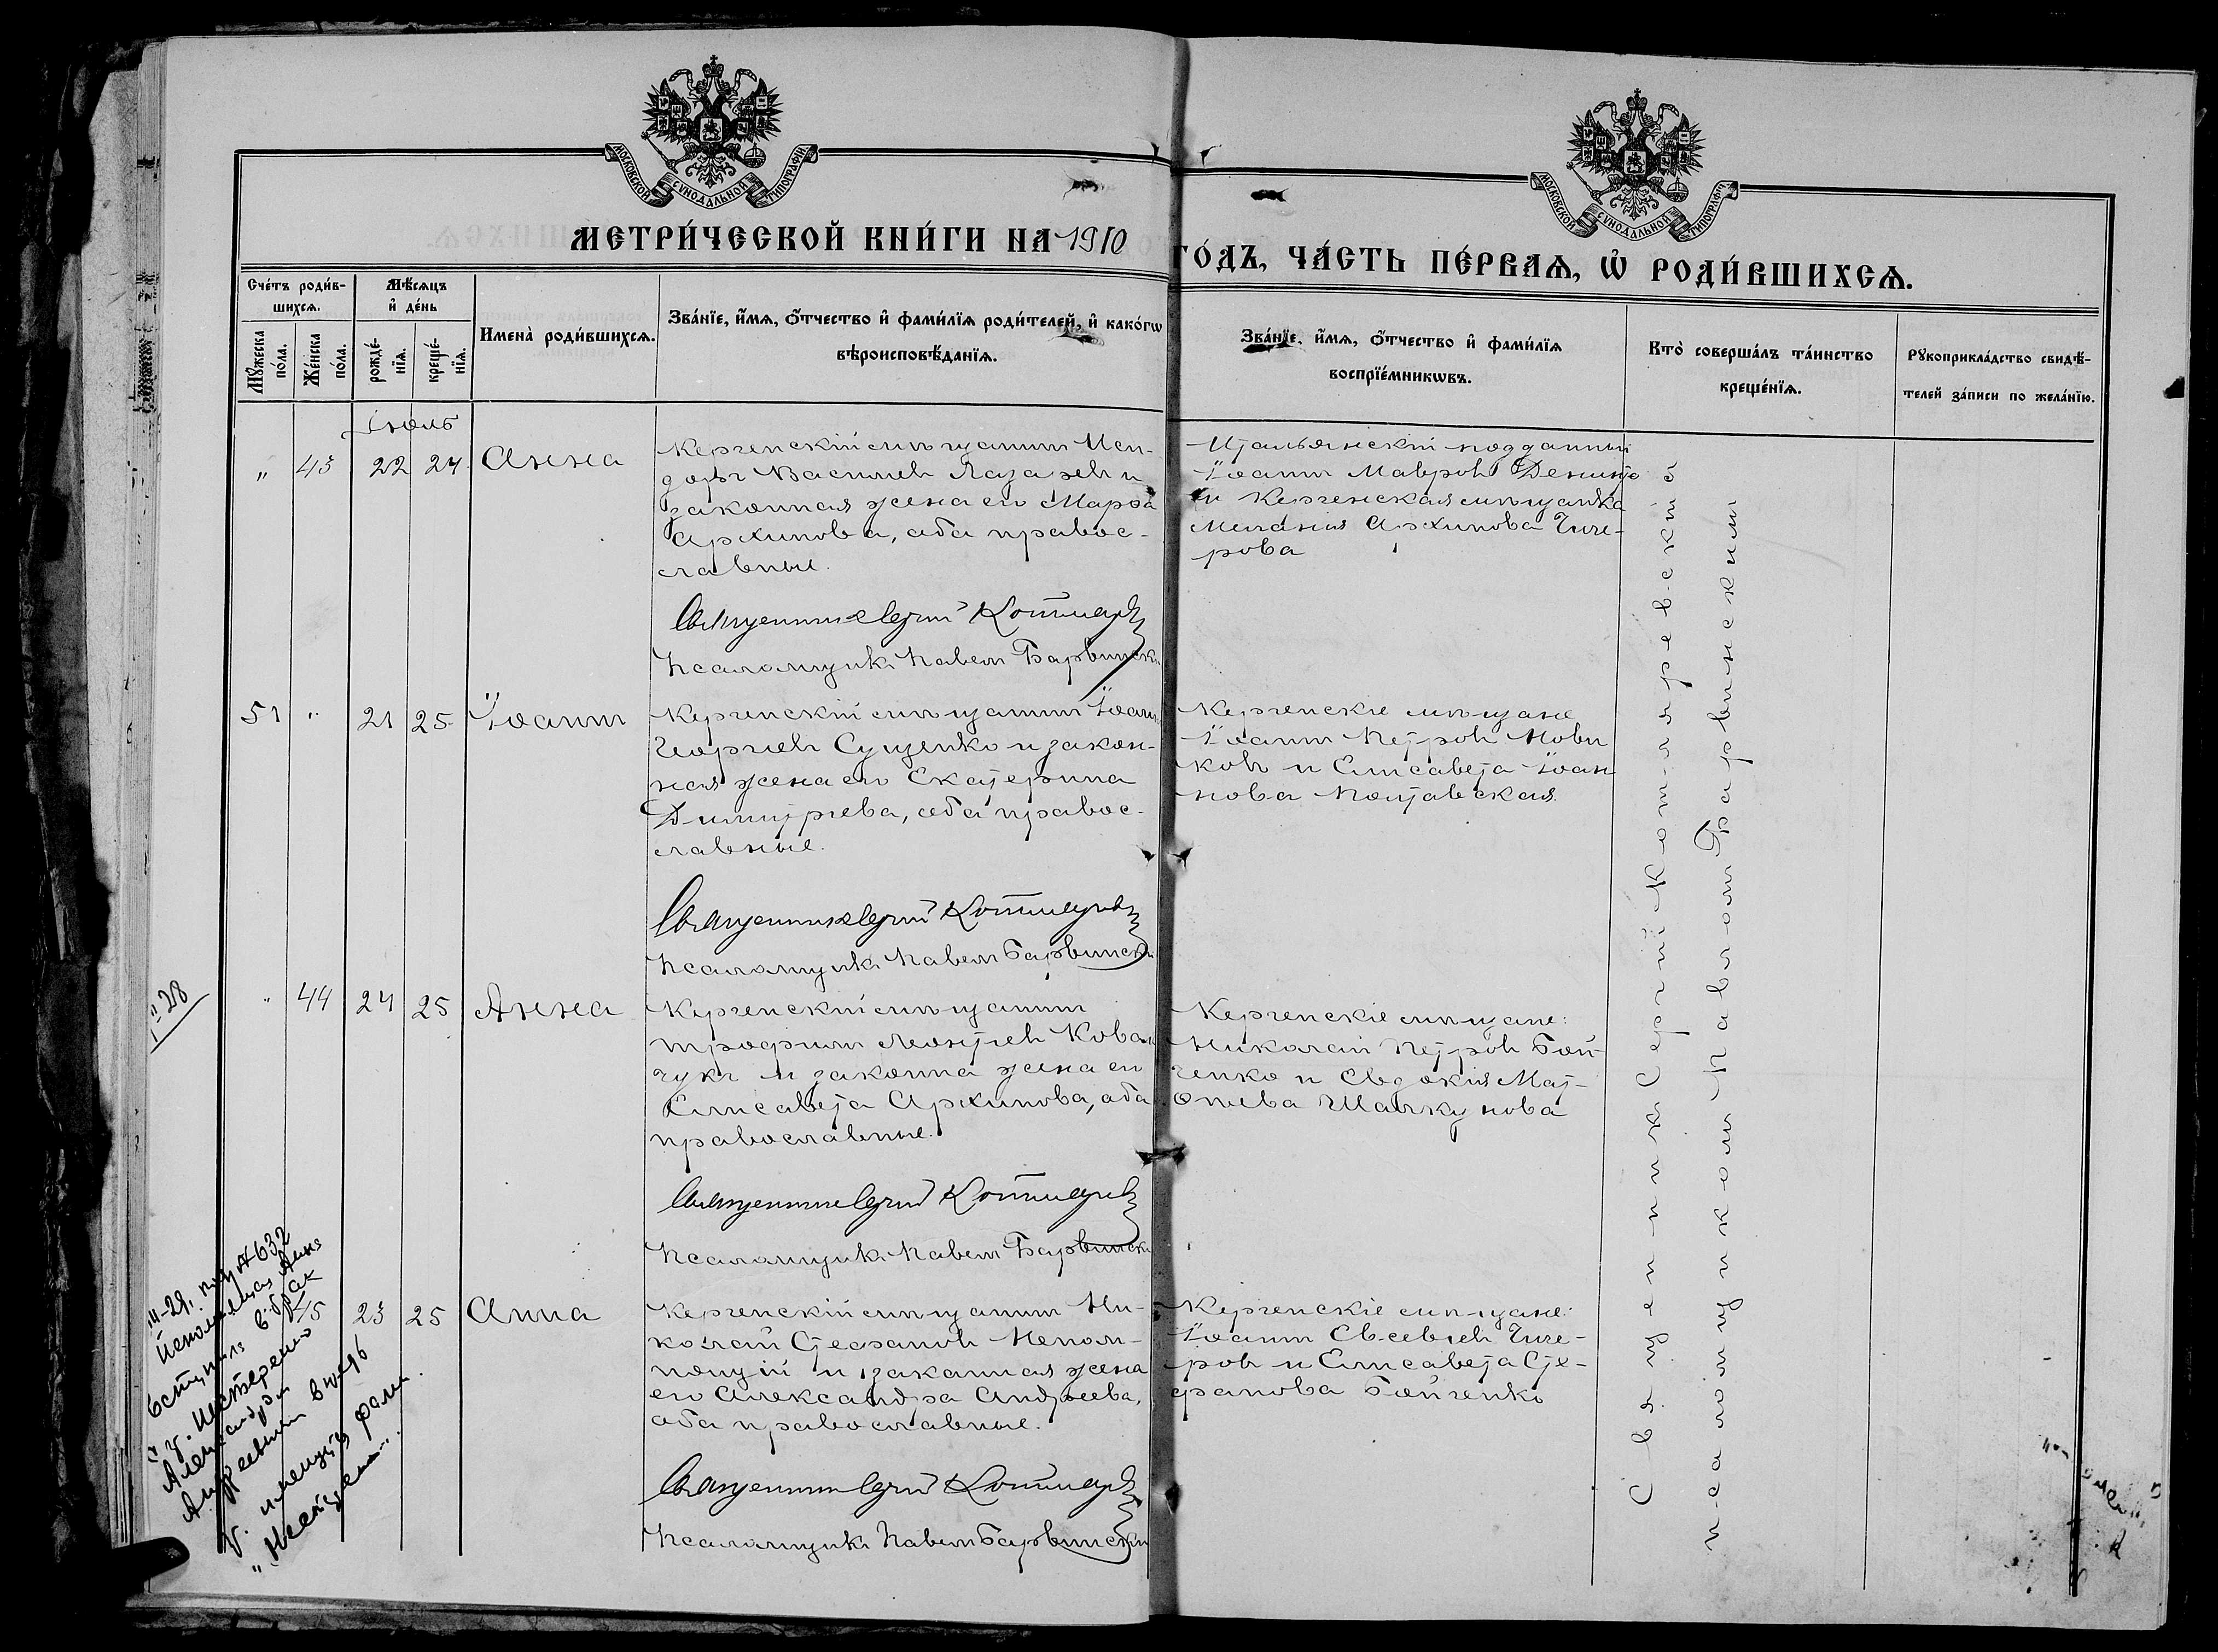 МОСКОВСКОЙ СѴНОДАЛЬНОЙ ТИПОГРАФІИ
МОСКОВСКОЙ СѴНОДАЛЬНОЙ ТИПОГРАФІИ
МЕТРИ́ЧЕСКОЙ КНИ́ГИ НА 1910
ГО́ДЪ, ЧА́СТЬ ПЕ́РВАѦ, Ѡ҆ РОДИ́ВШИХСѦ.
Сче́тъ роди́в-
шихсѧ.
Мꙋ́жеска по́ла.
Же́нска по́ла.
Мѣ́сѧцъ
и҆ де́нь
рожде́-
нїѧ.
креще́-
нїѧ.
Имена̀ роди́вшихсѧ.
Зва́нїе, и҆́мѧ, ѻ҆́тчество и҆ фами́лїѧ роди́телей, и҆ како́гѡ
вѣроисповѣ́данїѧ.
Зва́нїе, и҆́мѧ, ѻ҆́тчество и҆ фами́лїѧ
воспрїе́мникѡвъ.
Кто̀ соверша́лъ та́инство
креще́нїѧ.
Рꙋкоприкла́дство свидѣ́-
телей за́писи по жела́нїю.
Іюль
" 43 22 24 Анна
Керченскій мѣщанинъ Иси-
доръ Васильевъ Лазаревъ и
законная жена его Марѳа
Архипова, оба правос-
лавные.
Священникъ Сергій Котляревскій
Псаломщикъ Павелъ Барвинскій
Итальянскій подданный
Іоаннъ Мавровъ
и Керченская мѣщанка
Меланія Архипова Чиче-
рова
51 " 21 25 Іоаннъ
Керченскій мѣщанинъ Іоаннъ
Георгіевъ Сущенко и закон-
ная жена его Екатерина
Димитріева, оба правос-
лавные.
Священникъ Сергій Котляревскій
Псаломщикъ Павелъ Барвинскій
Керченскіе мѣщане
Іоаннъ Петровъ Нови
ковъ и Елисавета Іоан
нова Полтавская.
" 44 24 25 Анна
Керченскій мѣщанинъ
Трофимъ Леонтіевъ Коваль
чукъ и законна жена его
Елисавета Архипова, оба
православные.
Священникъ Сергій Котляревскій
Псаломщикъ Павелъ Барвинскій
Керченскіе мѣщане:
Николай Петровъ Бой-
ченко и Евдокія Мат-
ѳиева Шаркунова
45 23 25 Анна
Керченскій мѣщанинъ Ни-
колай Стефановъ Непом-
нющій и законная жена
его Александра Андреева,
оба православные.
Священникъ Сергій Котляревскій
Псаломщикъ Павелъ Барвинскій
Керченскіе мѣщане:
Іоаннъ Евсевіевъ Чиче-
ровъ и Елисавета Сте-
фанова Бойченко
Священникъ Сергій Котляревскій съ
псаломщикомъ Павломъ Барвинскимъ
28
Анна
вступила в брак
с г. Нестеренко
Александром
Андреевичем